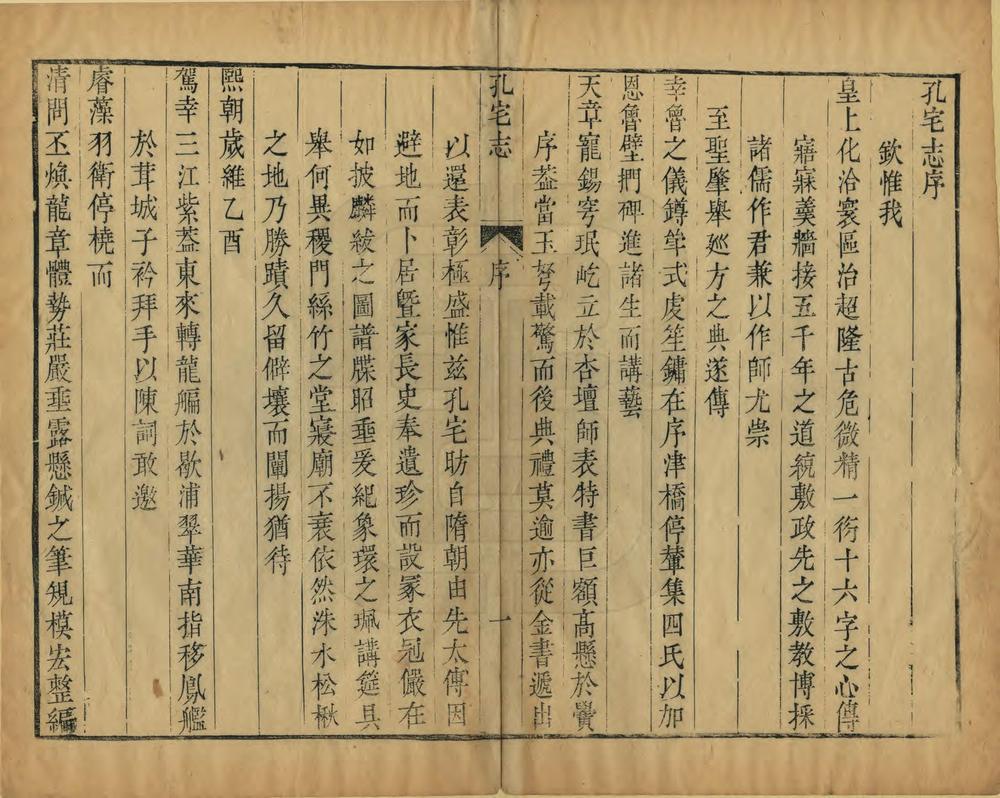 孔宅志序
欽惟我
皇上化洽寰區治超隆古危微精一衍十六字之心傳
寤寐羹牆接五千年之道統敷政先之敷教博採
諸儒作君兼以作師尤崇
至聖肇舉廵方之典遂傳
幸魯之儀鐏竿式䖍笙鏞在序津橋停輦集四氏以加
恩魯壁捫碑進諸生而講藝
天章寵錫穹珉屹立於杏壇師表特書巨額高懸於黌
序葢當玉弩載驚而後典禮莫逾亦從金書遞出
孔宅志
序
一
以還表彰極盛惟兹孔宅昉自隋朝由先太傅因
避地而卜居曁家長史奉遺珍而設冢衣冠儼在
如披麟紱之圖譜牒昭垂爰紀象環之珮講筵具
舉何異稷門絲竹之堂寢廟不衰依然洙水松楸
之地乃勝蹟久留僻壤而闡揚猶待
熙朝歲維乙酉
駕幸三江紫葢東來轉龍艑於歇浦翠華南指移鳳艦
於茸城子衿拜手以陳詞敢邀
睿藻羽衛停橈而
清問丕煥龍章體勢莊嚴垂露懸鍼之筆規模宏整編